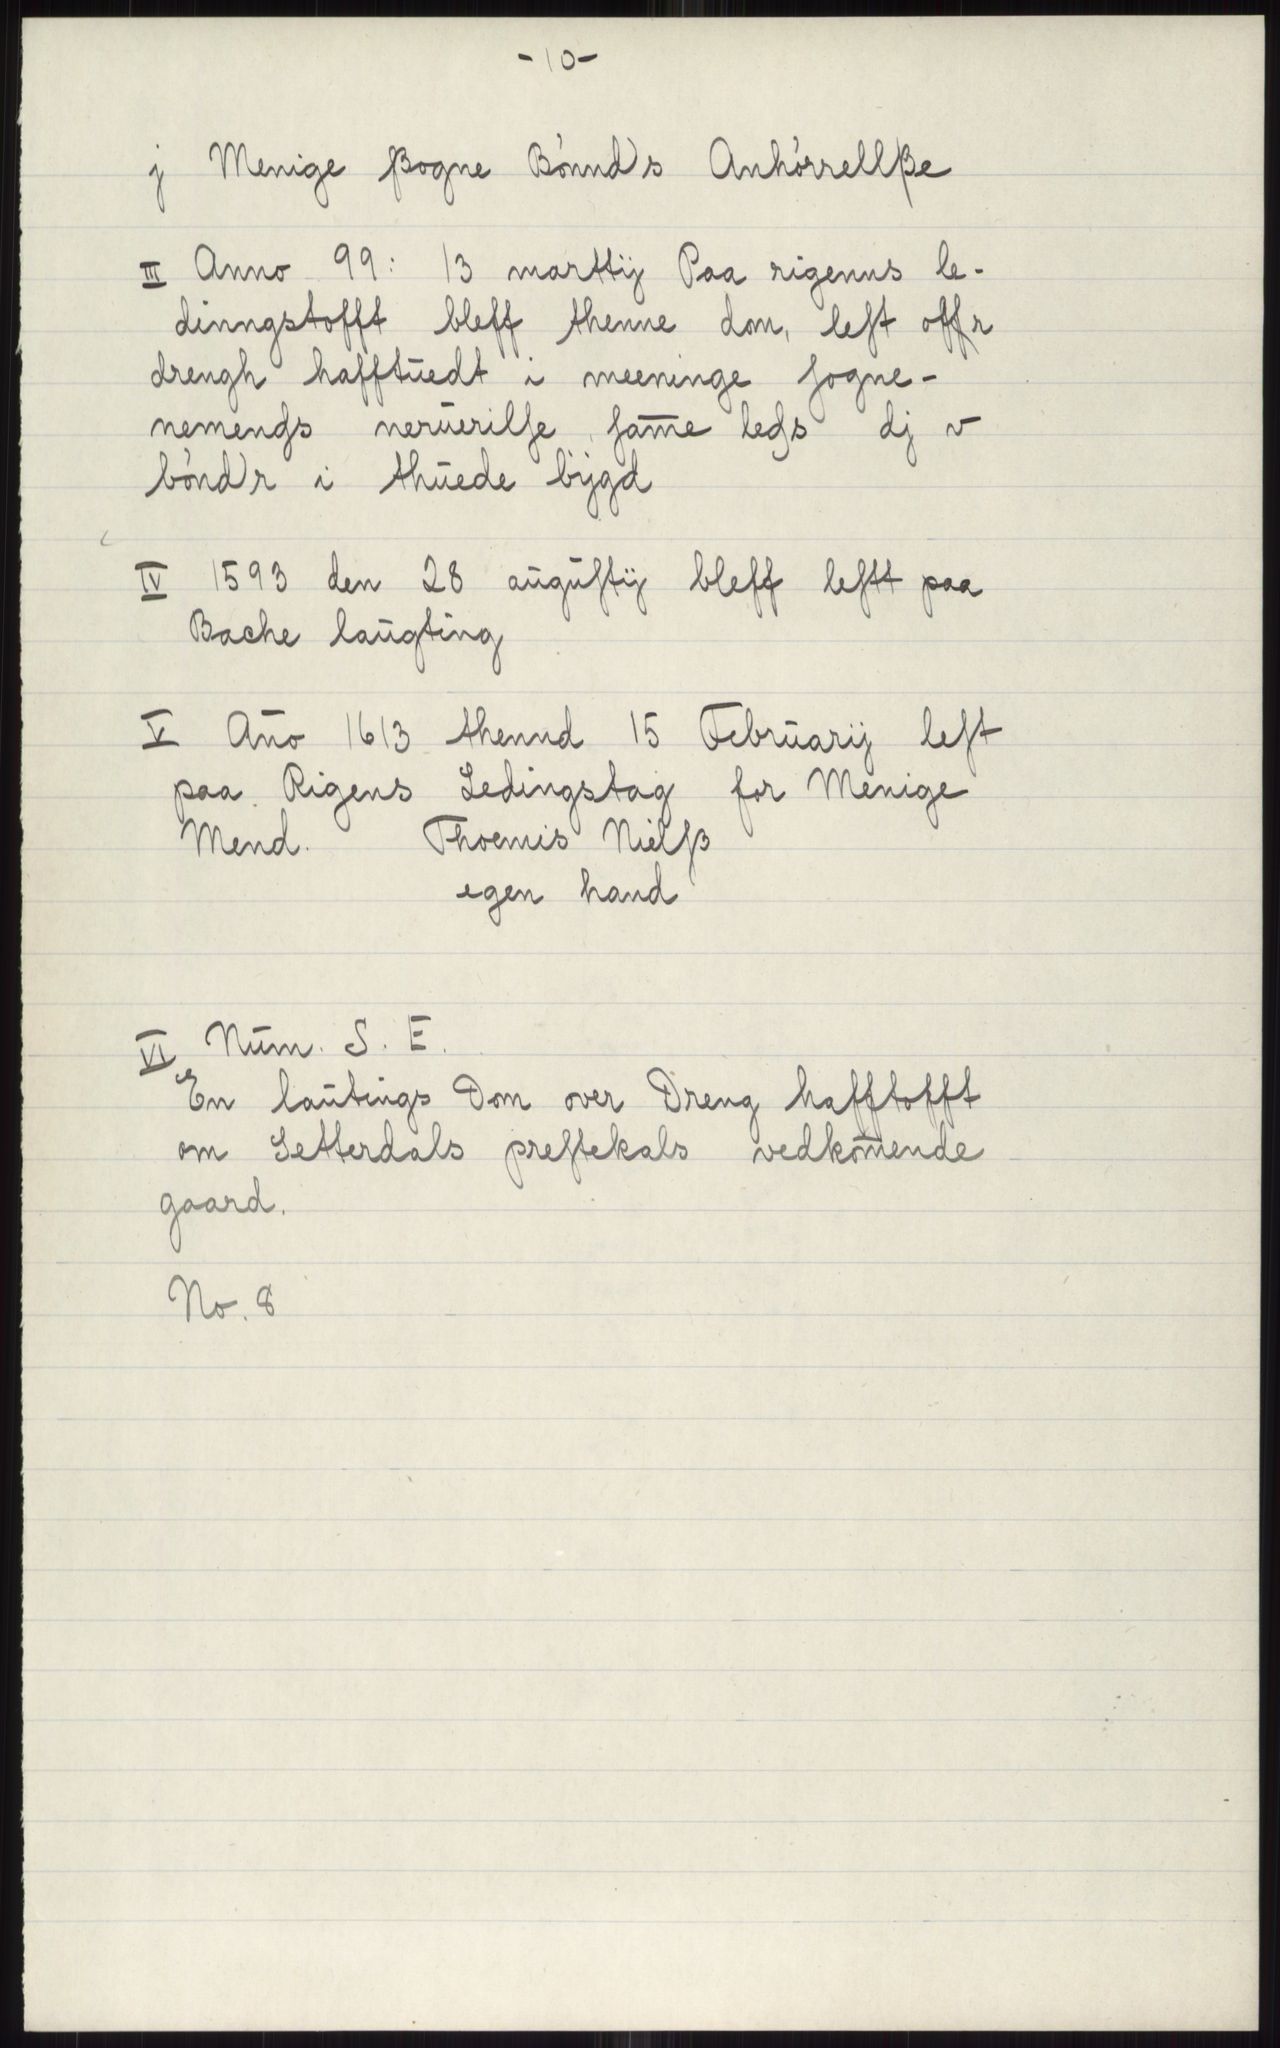 -10-
j Menige ßogne Bönnds Anhörrellße
III Anno 99: 13 marttij Paa rigenns le-
dinngstofft bleff thenne dom, leſt offr
drengh hafftŭedt i meeninge ſogne-
nemendſs nerŭerilſe, ſam̅e ledſs dj v
bönd)r i thŭede bÿgd
IV 1593 den 28 aŭgŭſtij bleff leſtt paa
Bache laŭgting
V An̅o 1613 thennd 15 Febrŭarij leſt
paa. Rigens Ledingstag for Menige
Mend. Thoemis Nielſß
egen hand
VI Nŭm. S. E.
En laŭtings Dom over Dreng hafftofft
om Setterdals preſtekals vedkom̅ende
gaard.
No. 8